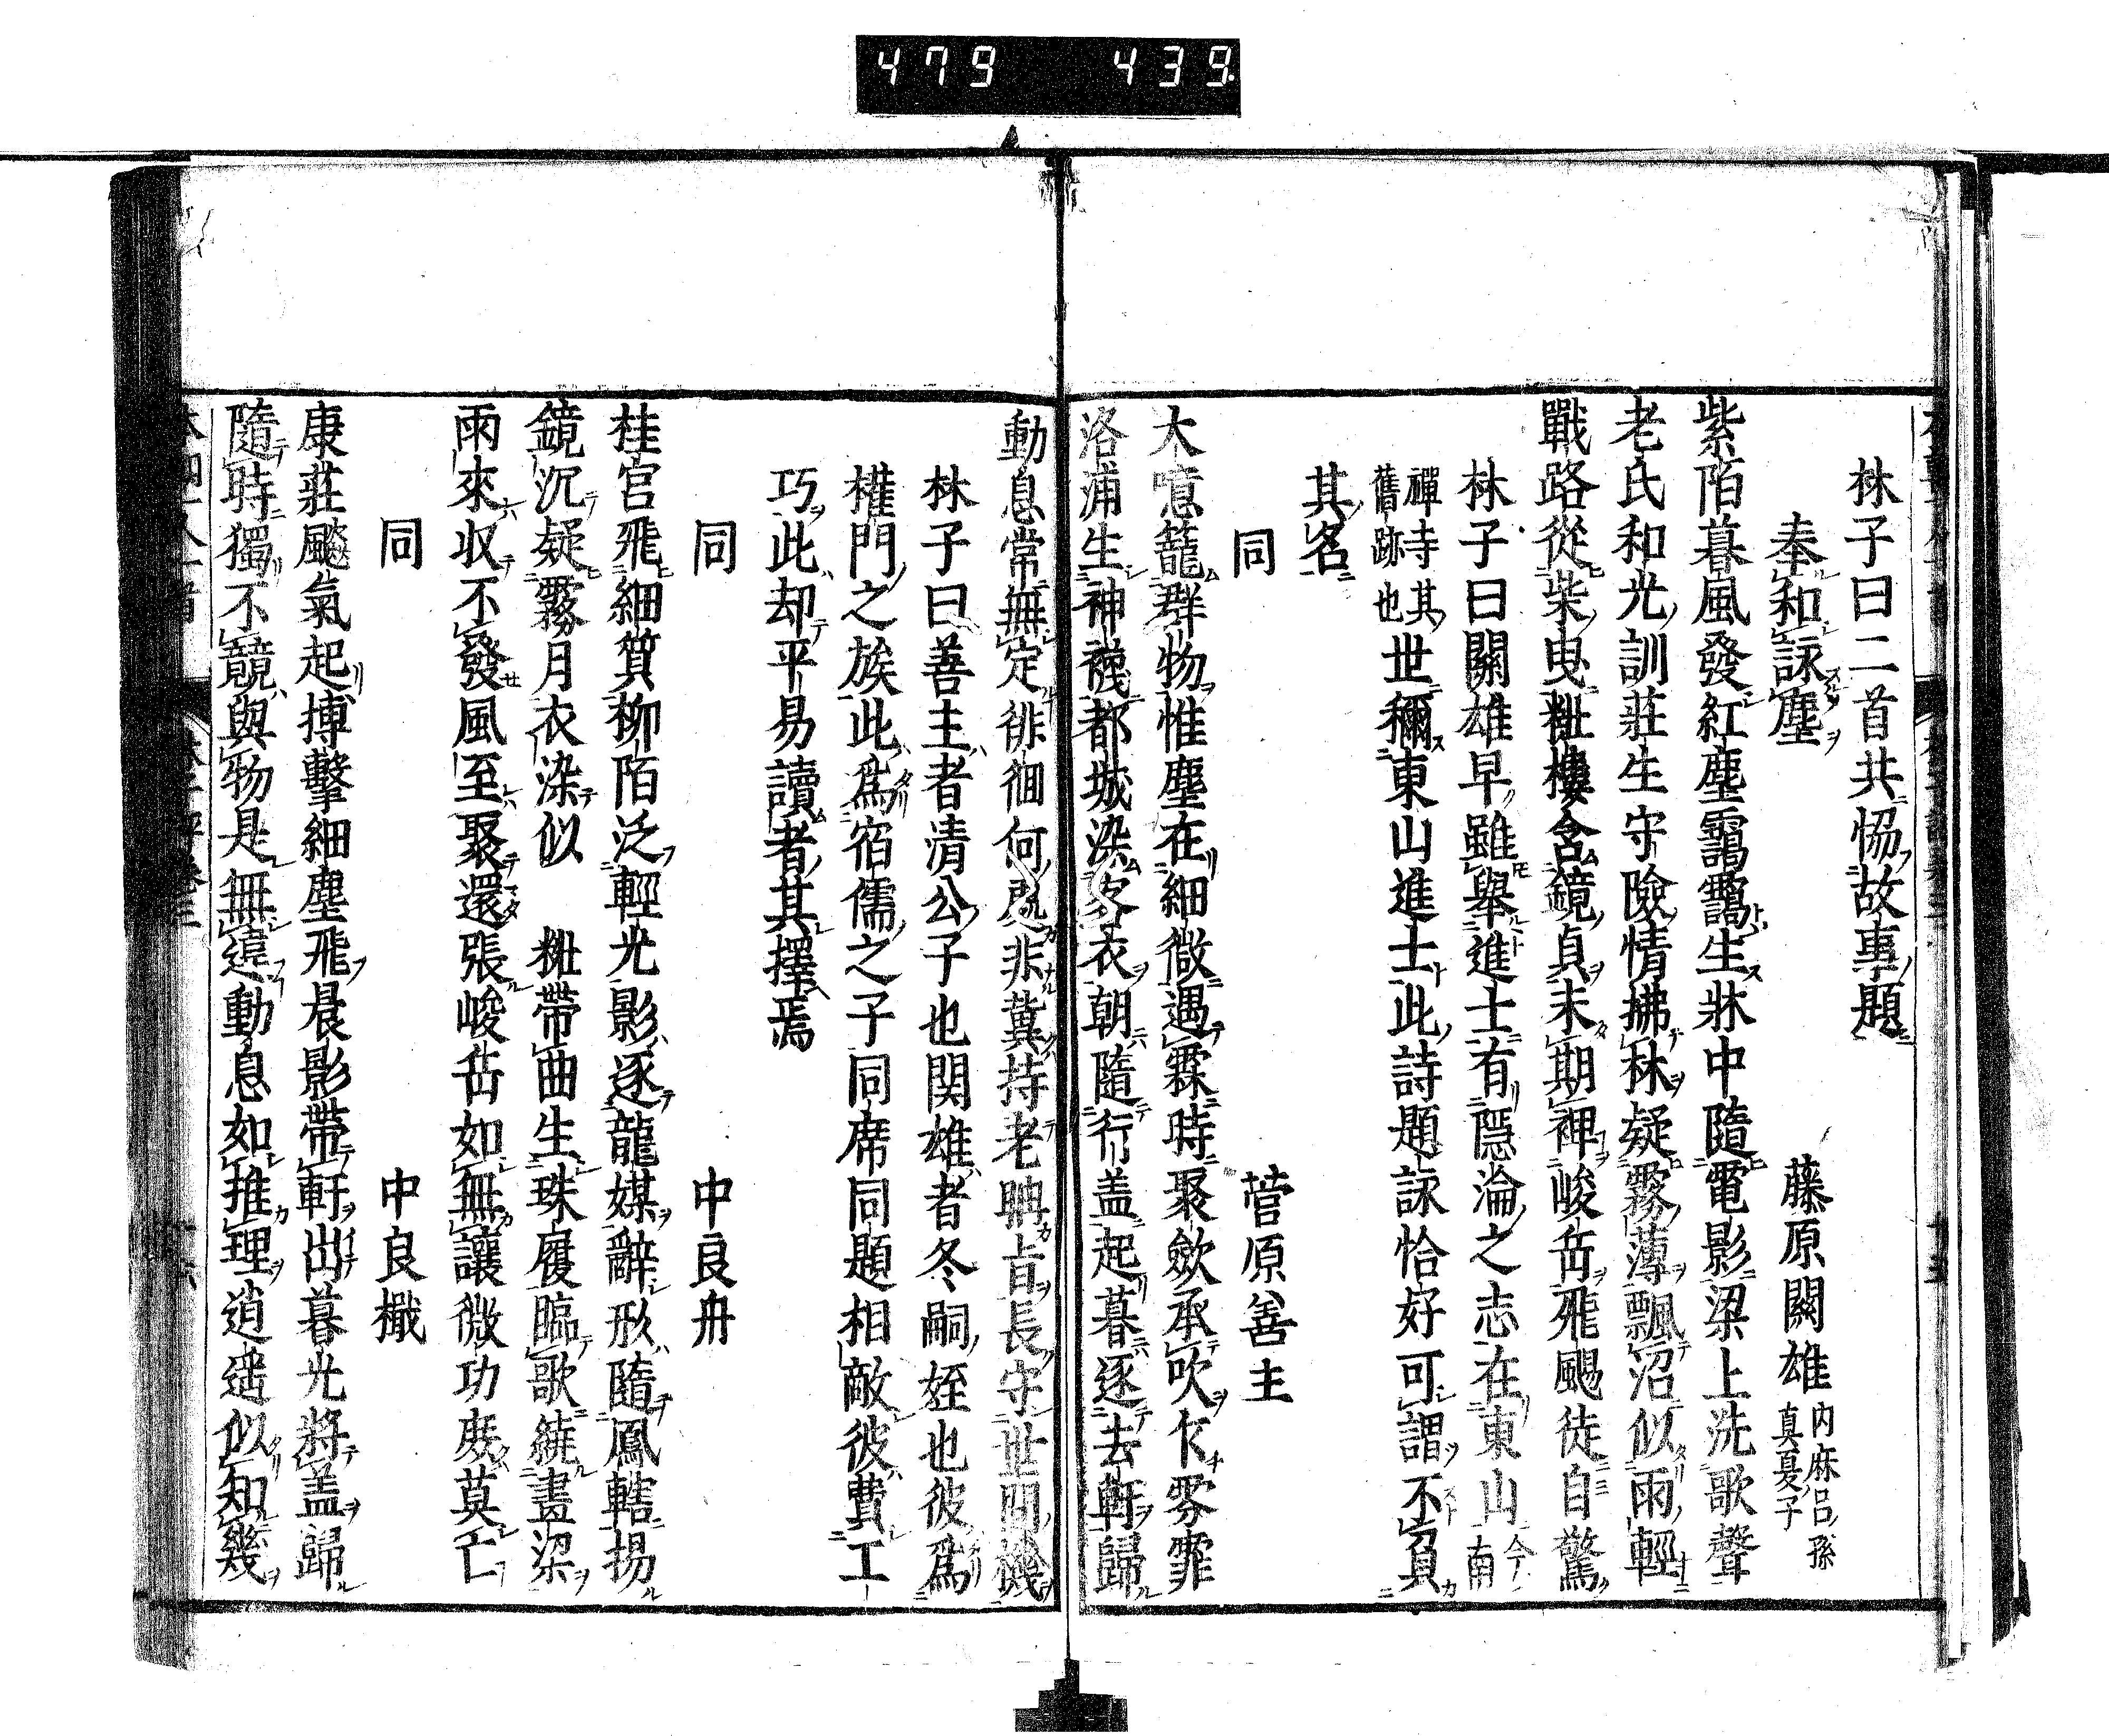 479 439.
林子曰二首共恊故事題
奉和詠塵 藤原關雄 内麻呂孫
真夏子
紫陌暮風發紅塵靄靄生牀中隨電影梁上洗歌聲
老氏和光訓莊生守險情拂林疑霧薄飄沼似雨輕
戰路從柴曳粧樓含鏡貞未期裨峻岳飛颺徒自驚
林子曰關雄早雖舉進士有隱淪之志在東山今南
禪寺其
舊跡也世稱東山進士此詩題詠恰好可謂不負
其名
同 菅原善主
大噫籠群物惟塵在細微遇霖時聚歛承吹乍雰霏
洛浦生神襪都城染客衣朝隨行盖起暮逐去軒歸
動息常無定徘徊何處非冀持老聃旨長守世間機
林子曰善主者清公子也関雄者冬嗣姪也彼爲
權門之族此爲宿儒之子同席同題相敵彼費工
巧此却平易讀者其擇焉
同 中良舟
桂宮飛細質柳陌泛輕光影逐龍媒辭形隨鳳轄揚
鏡沉疑霧月衣染似 粧帶曲生珠履臨歌繞畫梁
雨來収不發風至聚還張峻岳如無讓微功庶莫亡
同 中良檝
康莊颷氣起搏擊細塵飛晨影帶軒出暮光將盖歸
隨時獨不競與物是無違動息如推理逍遥似知幾